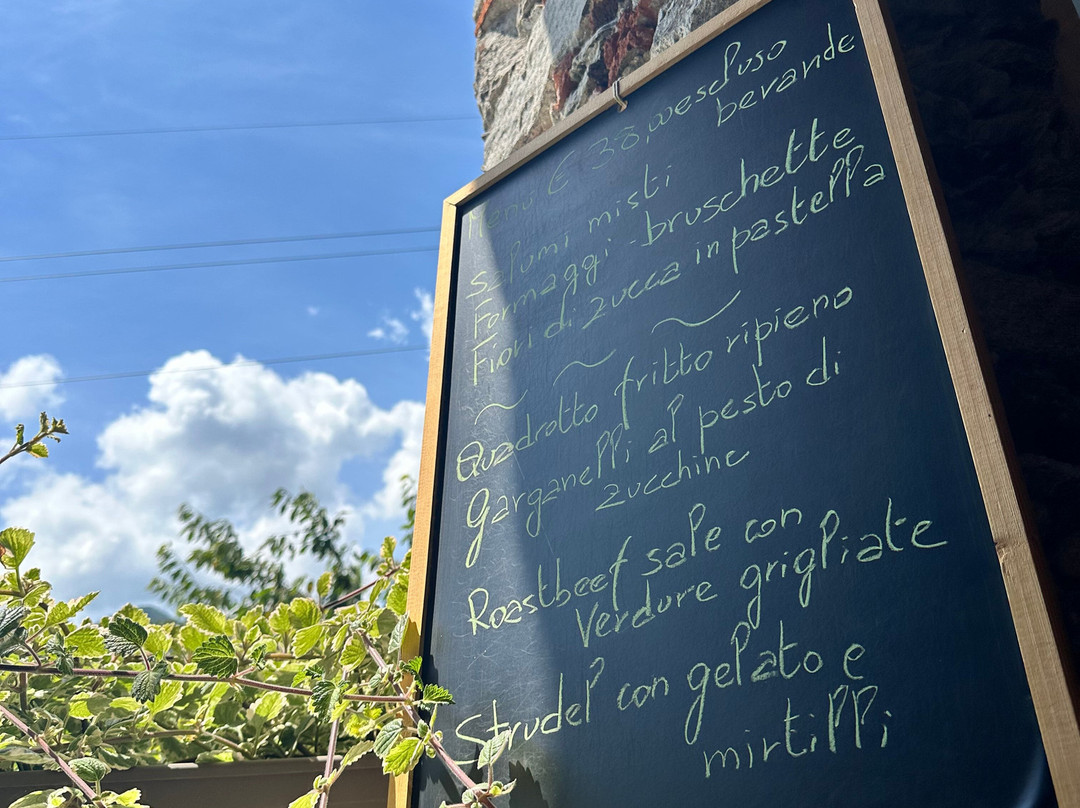 Menù € 38,00 escluso
bevande
Salumi misti
Formaggi - bruschette
Fiori di zucca in pastella
~ ~ ~
Quadrotto fritto ripieno
Garganelli al pesto di
zucchine
Roastbeef sale con
Verdure grigliate
Strudel con gelato e
mirtilli